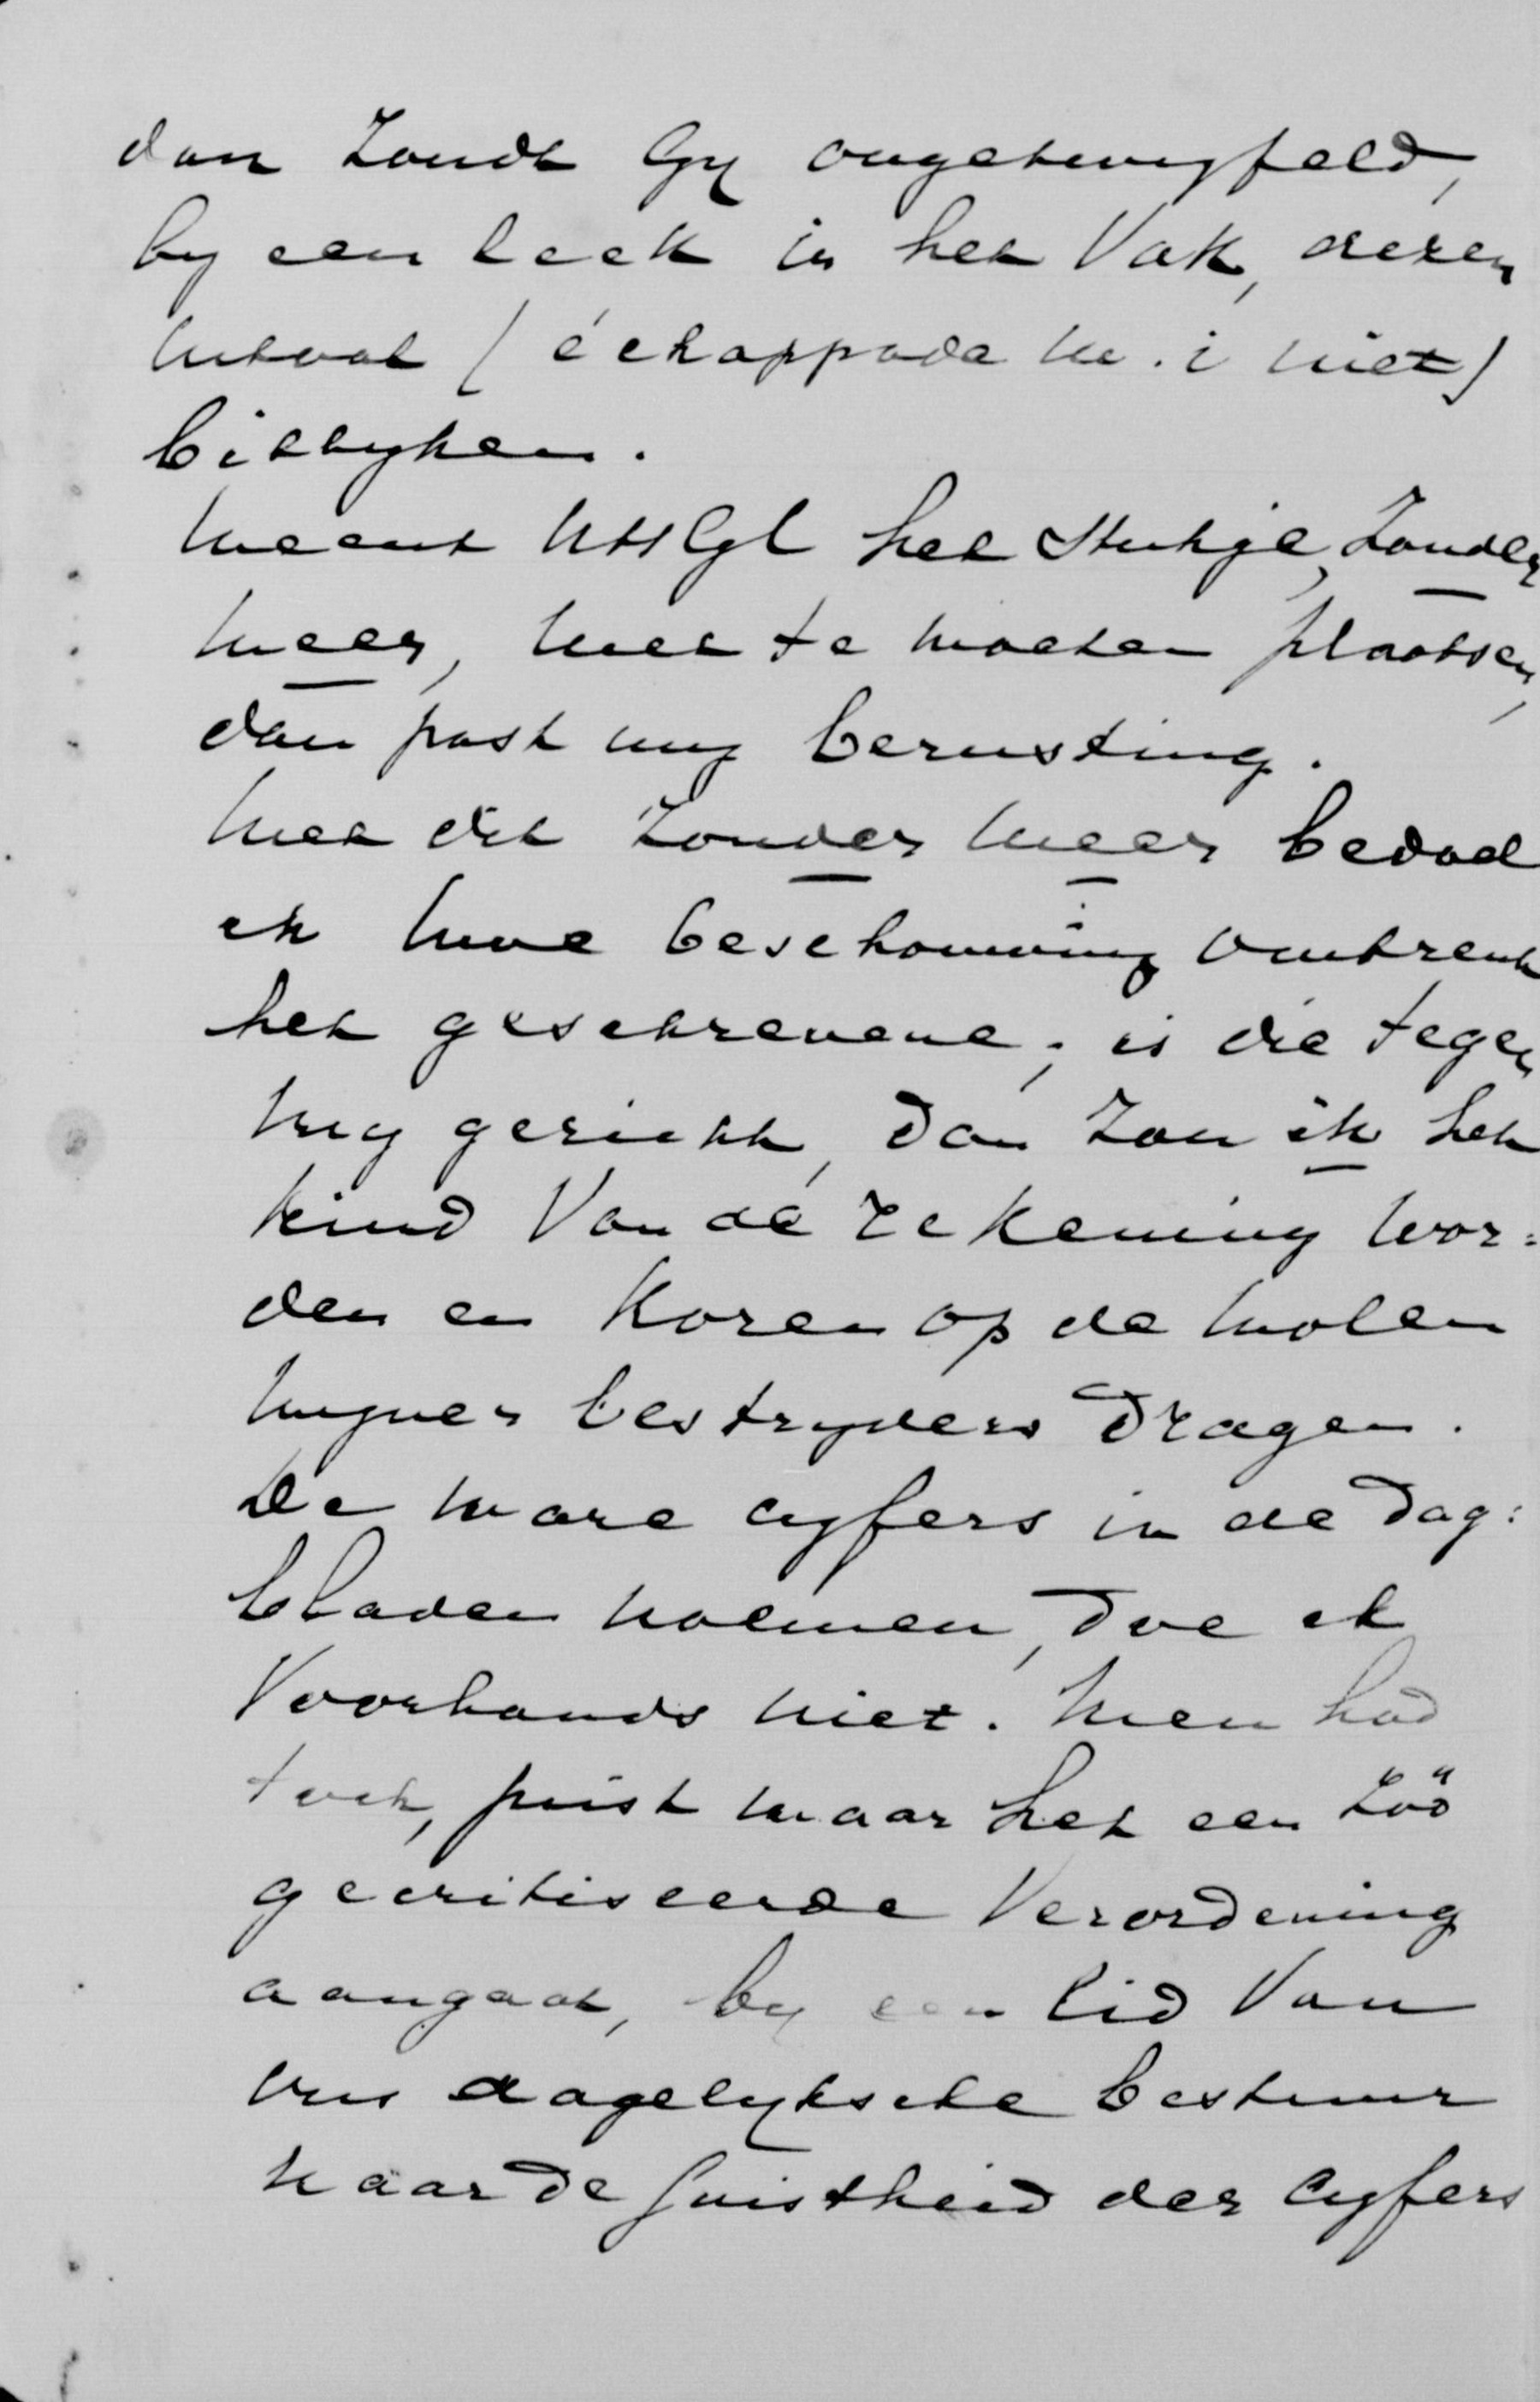 dan zoudt Gy ongetwyfeld,
by een leek in het Vak, dezen
uitval (échappade m. i niet)
billyken.
Meent UEGl het Stukje, zonder
meer, niet te moeten plaatsen,
dan past my berusting.
Met dit zonder meer bedoel
ik Uwe beschouwing omtrent
het geschrevene; is die tegen
my gericht, dan zou ik het
kind Van de rekening wor=
den en Koren op de molen
myner bestryders dragen.
De ware cyfers in de dag=
bladen noemen, doe ik
Voorhands niet. Men had
toch, juist waar het een zóó
gecritiseerde Verordening
aangaat, by een lid Van
ons dagelyksche bestuur
naar de juistheid der cyfers